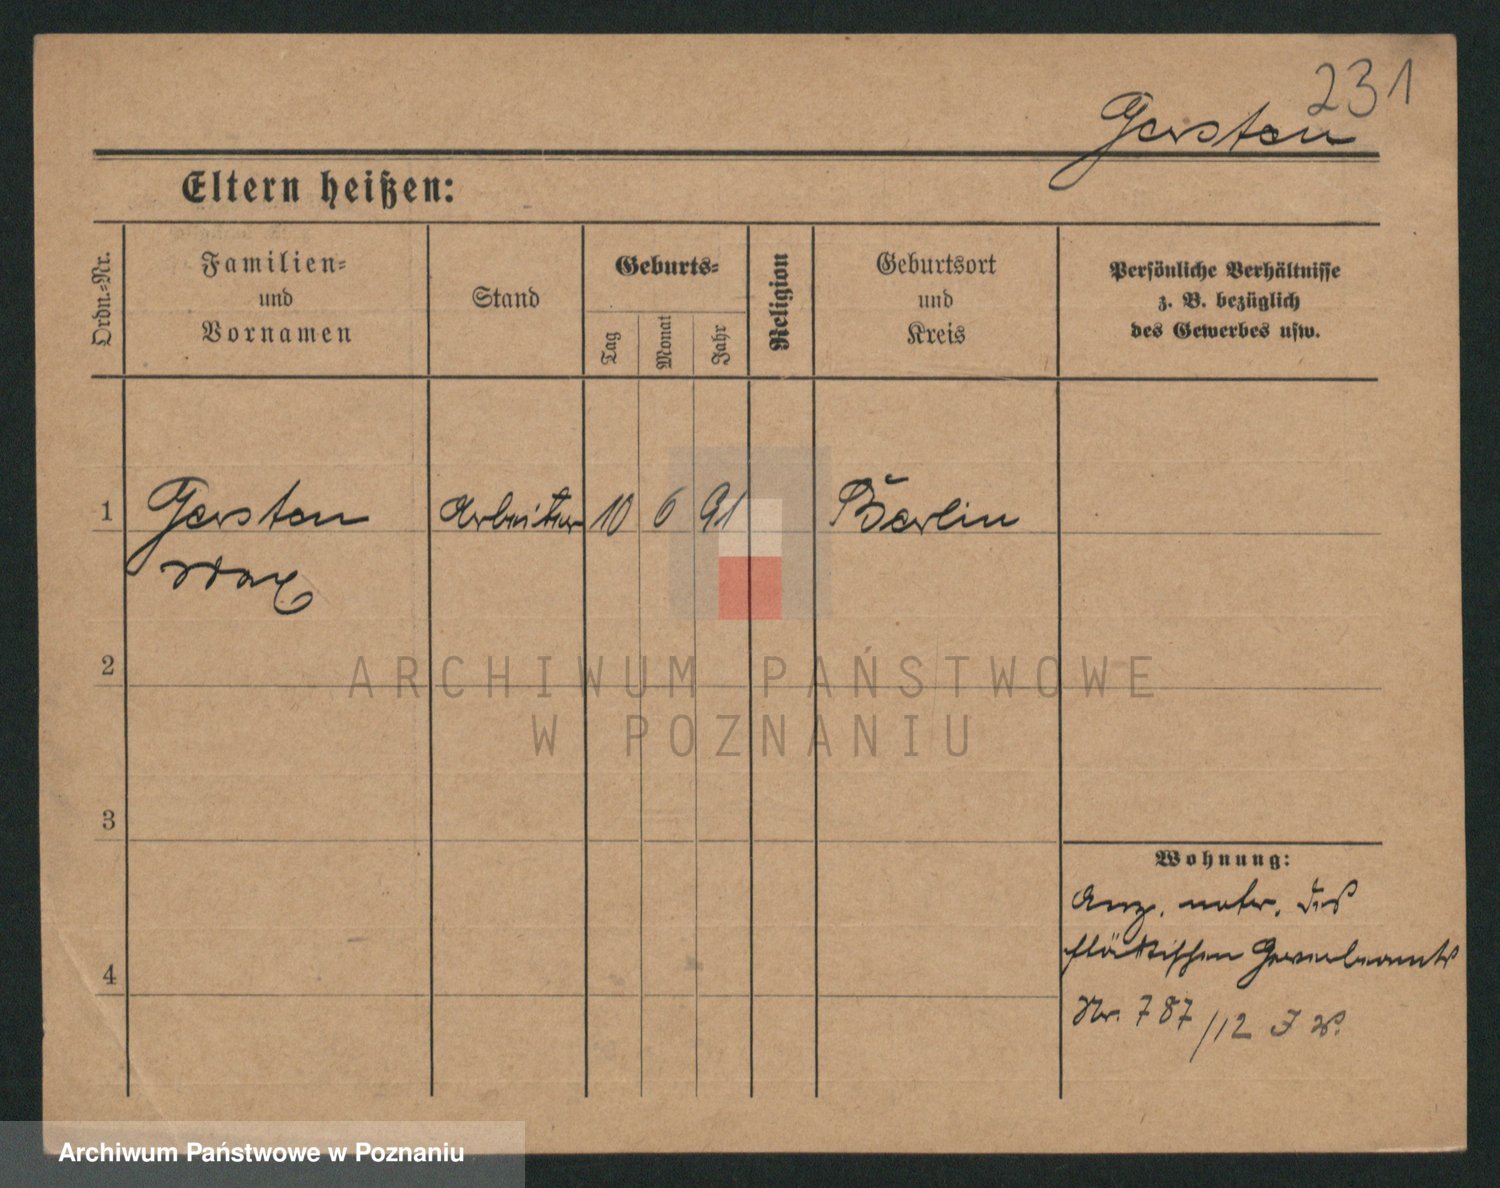 231
Gersten
Eltern heißen:
Ordn.-Nr.
Familien-
und
Vornamen
Stand
Geburts-
Tag
Monat
Jahr
Religion
Geburtsort
und
Kreis
Persönliche Verhältnisse
z. B. bezüglich
des Gewerbes usw.
1
Gersten
Max
Arbeiter
10
6
91
Berlin
2
ARCHIWUM PAŃSTWOWE
W POZNANIU
3
Wohnung:
Anz. des
städtischen Gewerbeamts
Nr. 787/12
4
Archiwum Państwowe w Poznaniu